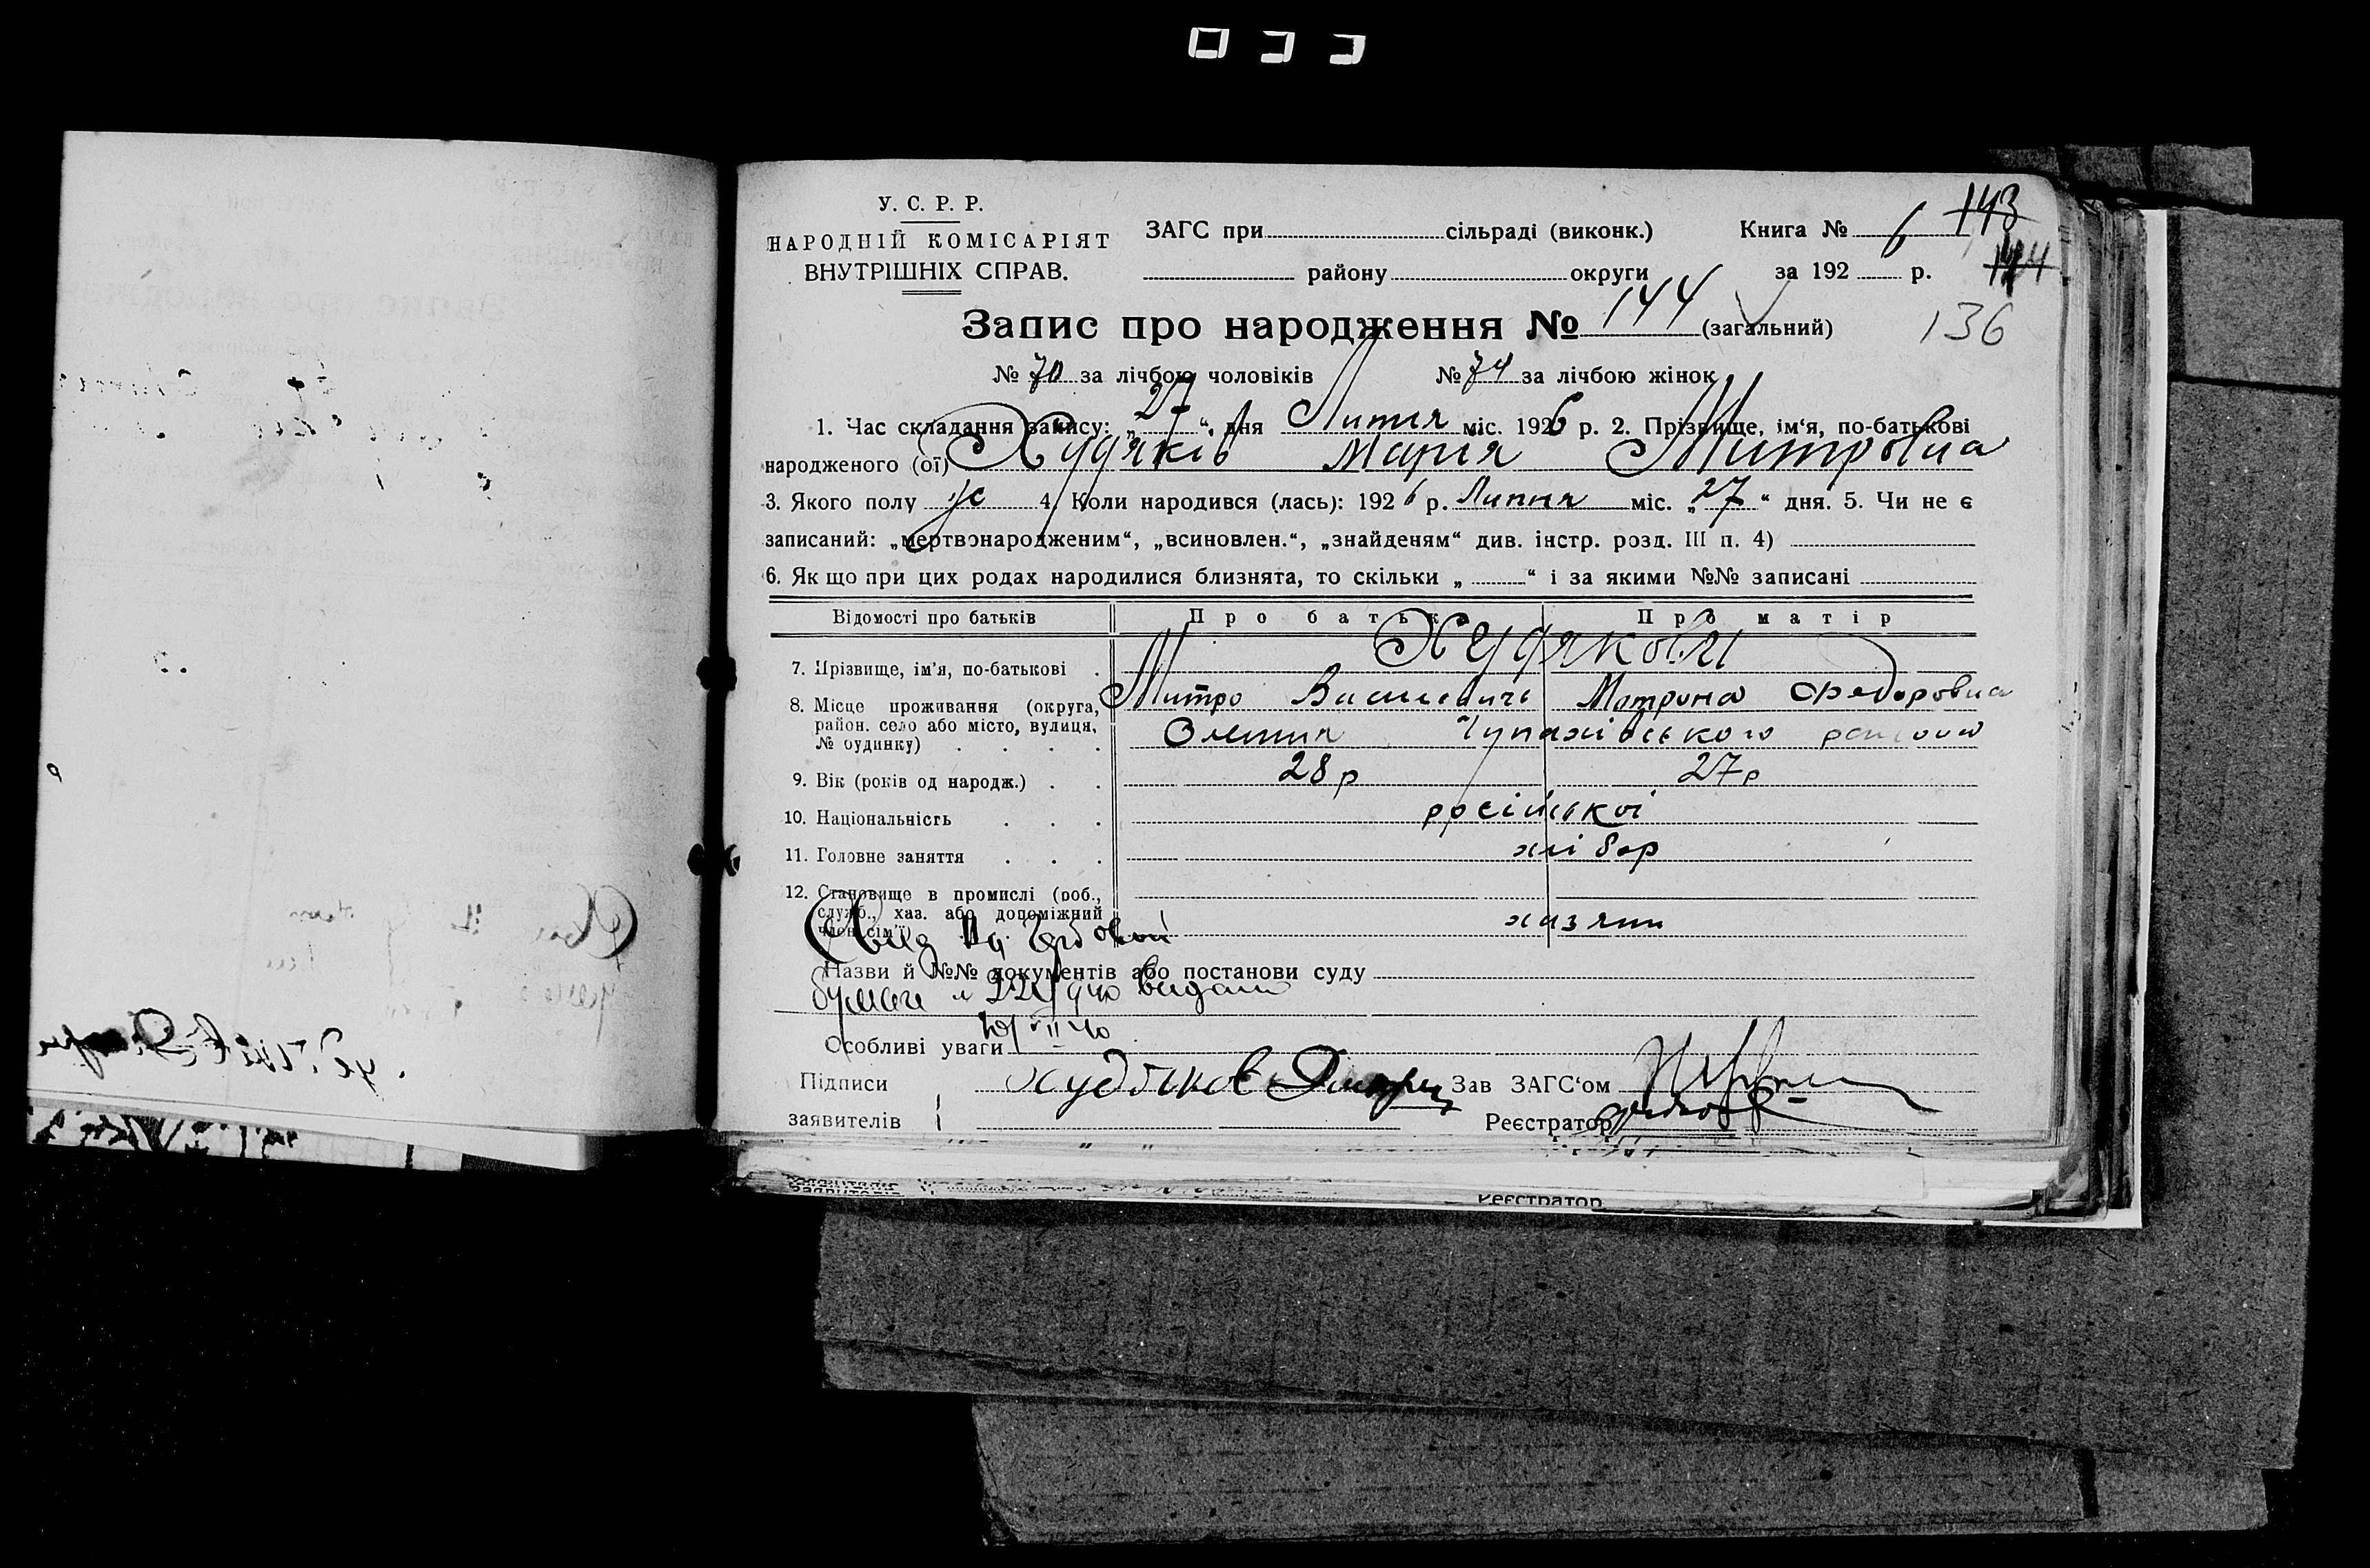 У. С. Р. Р.
НАРОДНІЙ КОМІСАРІЯТ
ВНУТРІШНІХ СПРАВ.
ЗАГС при сільраді (виконк.)
району округи
Книга № 6
за 192 р.
143
144
136
Запис про народження № 144 (загальний)
№ 70 за лічбою чоловіків № 74 за лічбою жінок
1. Час складання запису: „27“ дня Липня міс. 1926 р. 2. Прізвище, ім‘я, по-батькові
народженого (ої) Худяків Марія Митровна
3. Якого полу ж 4. Коли народився (лась): 1926 р. Липня міс. „27“ дня. 5. Чи не є
записаний: „мертвонародженим“, „всиновлен.“, „знайденям“ див. інстр. розд. III п. 4)
6. Як що при цих родах народилися близнята, то скільки „ “ і за якими №№ записані
Відомості про батьків Про батька Про матір
7. Прізвище, ім’я, по-батькові . Худякови
Митро Василевичь Мотрона Федоровна
8. Місце проживання (округа, район. село або місто, вулиця, № будинку) . . . . Олешня Чупахівського району
9. Вік (років од народж.) . . 28 р 27 р
10. Національність . . . російської
11. Головне заняття . . . хлібор
12. Становище в промислі (роб., служб., хаз. або допоміжний член сім’ї) хазяин
Назви й №№ документів або постанови суду
22
40
Особливі уваги
Підписи
заявителів
Худяков Дмитри
Зав ЗАГС‘ом
Реєстратор
Реєстратор